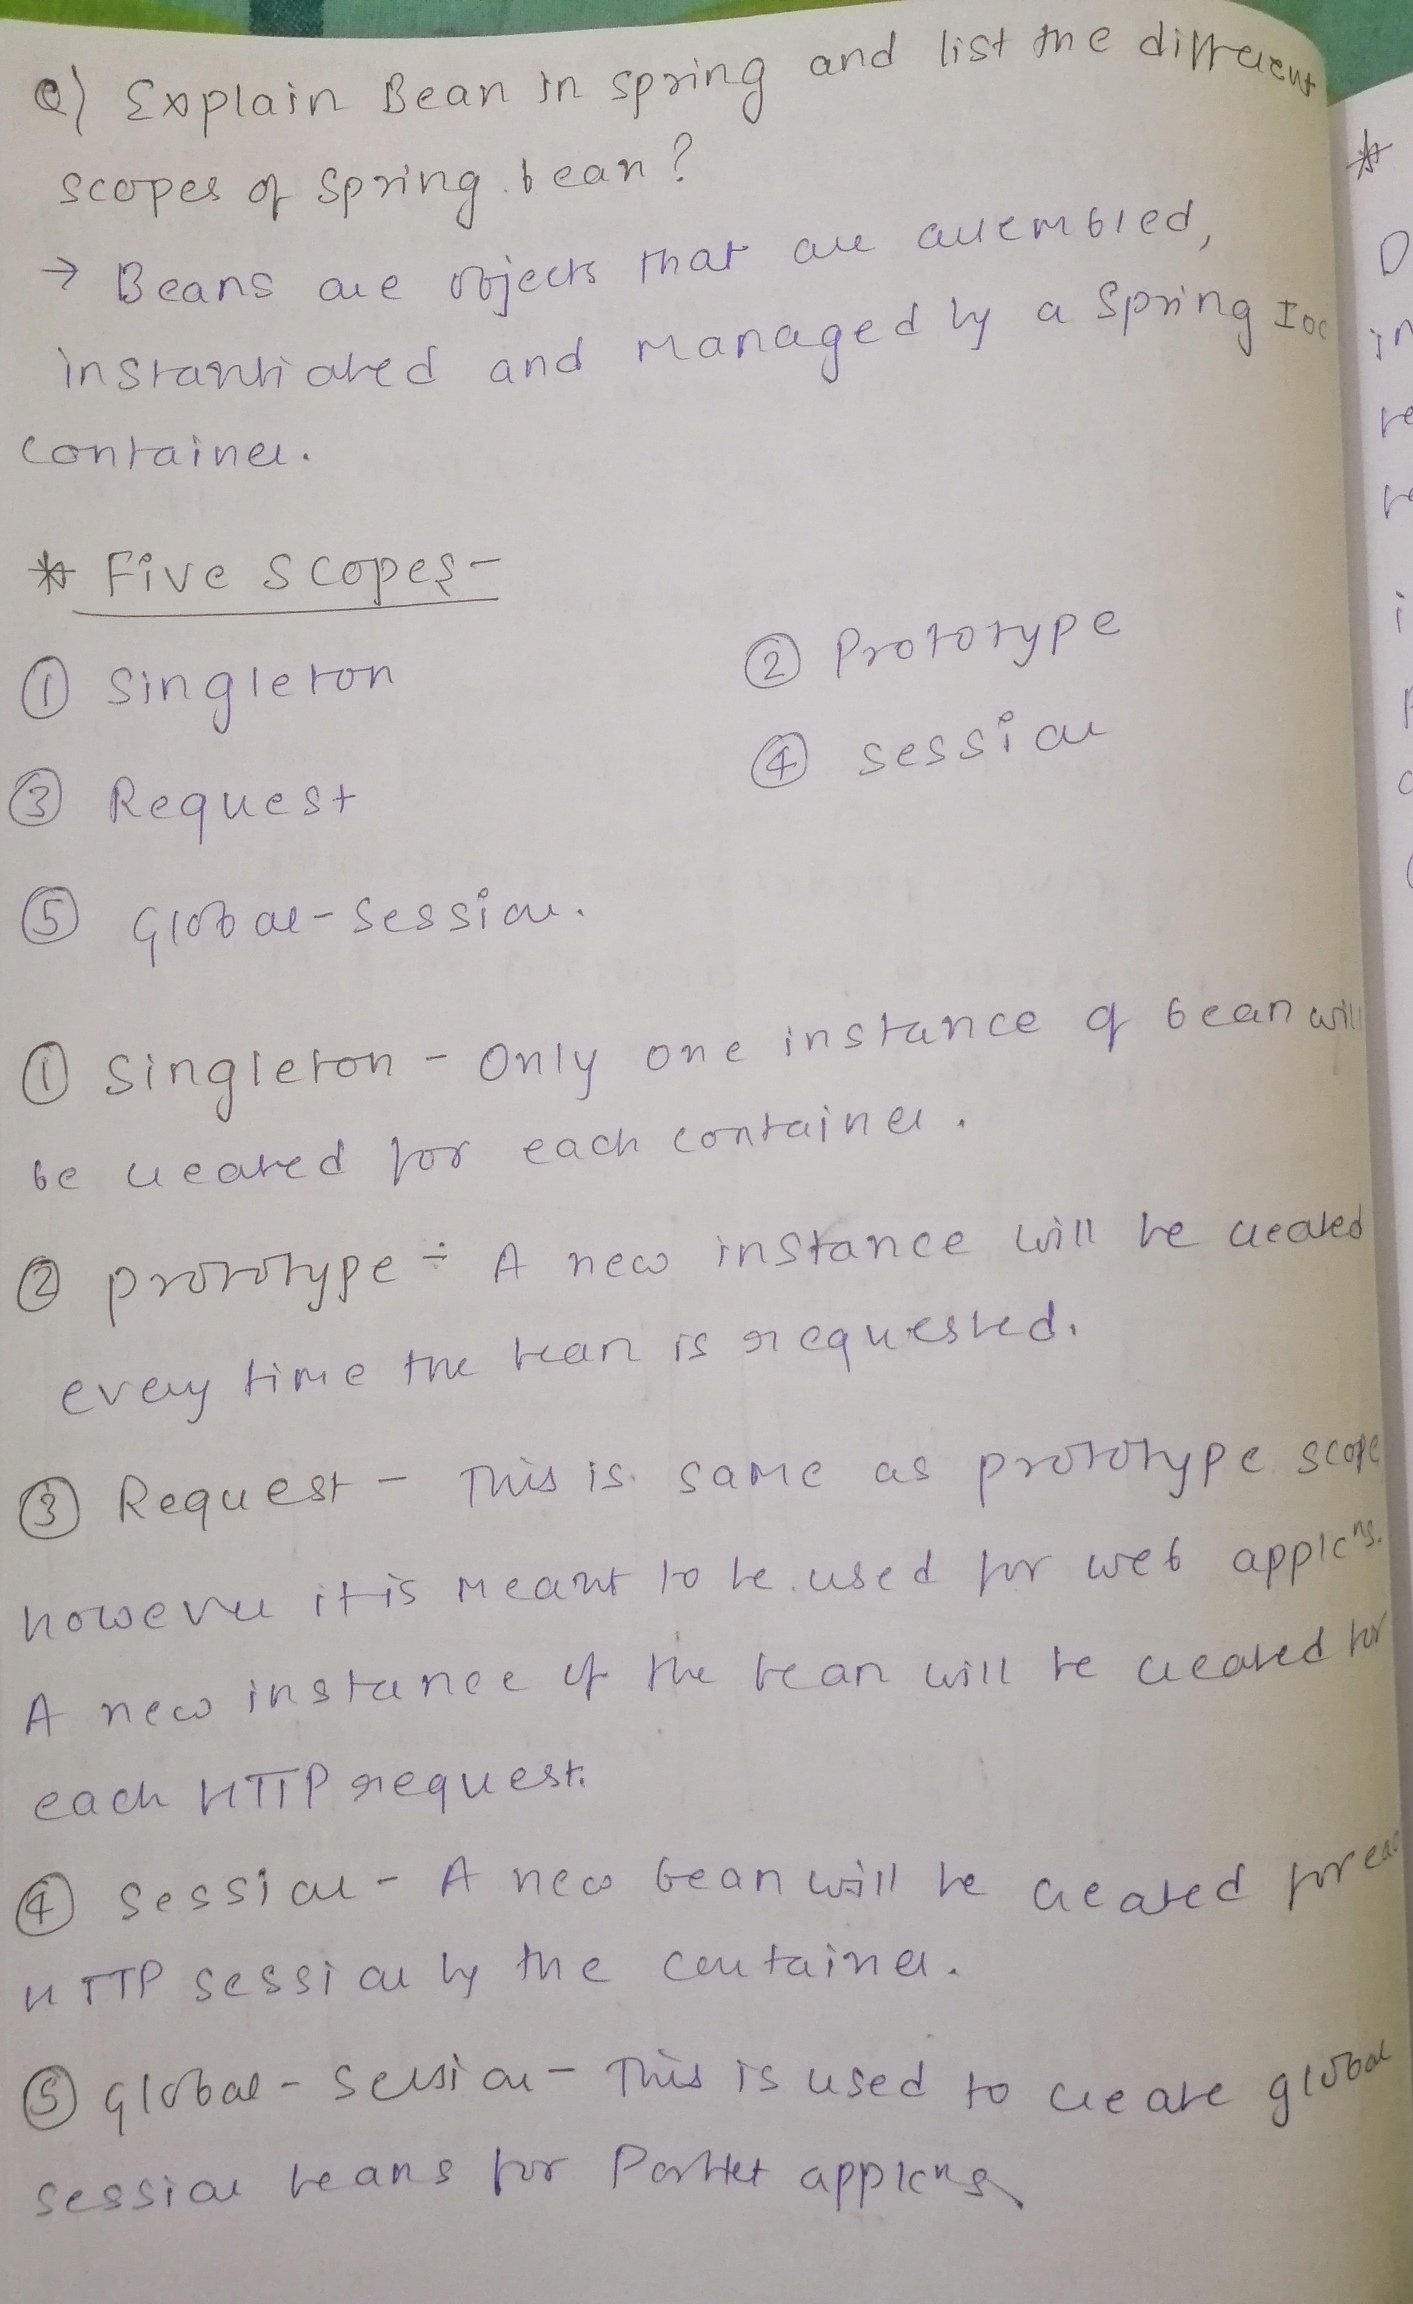 Q) Explain Bean in spring and list the different
scopes of spring bean?
→ Beans are objects that are assembled,
instantiated and managed by a Spring IoC
container.
* Five scopes-
① Singleton
② Prototype
③ Request
④ session
⑤ Global-session.
① Singleton - Only one instance of bean will
be created for each container.
② prototype ÷ A new instance will be created
every time the bean is requested.
③ Request - This is same as prototype scope
however it is meant to be used for web applcns.
A new instance of the bean will be created for
each HTTP request.
④ Session - A new bean will be created for
HTTP session by the container.
⑤ Global-session - This is used to create global
session beans for Portlet applcns
*
in
re
re